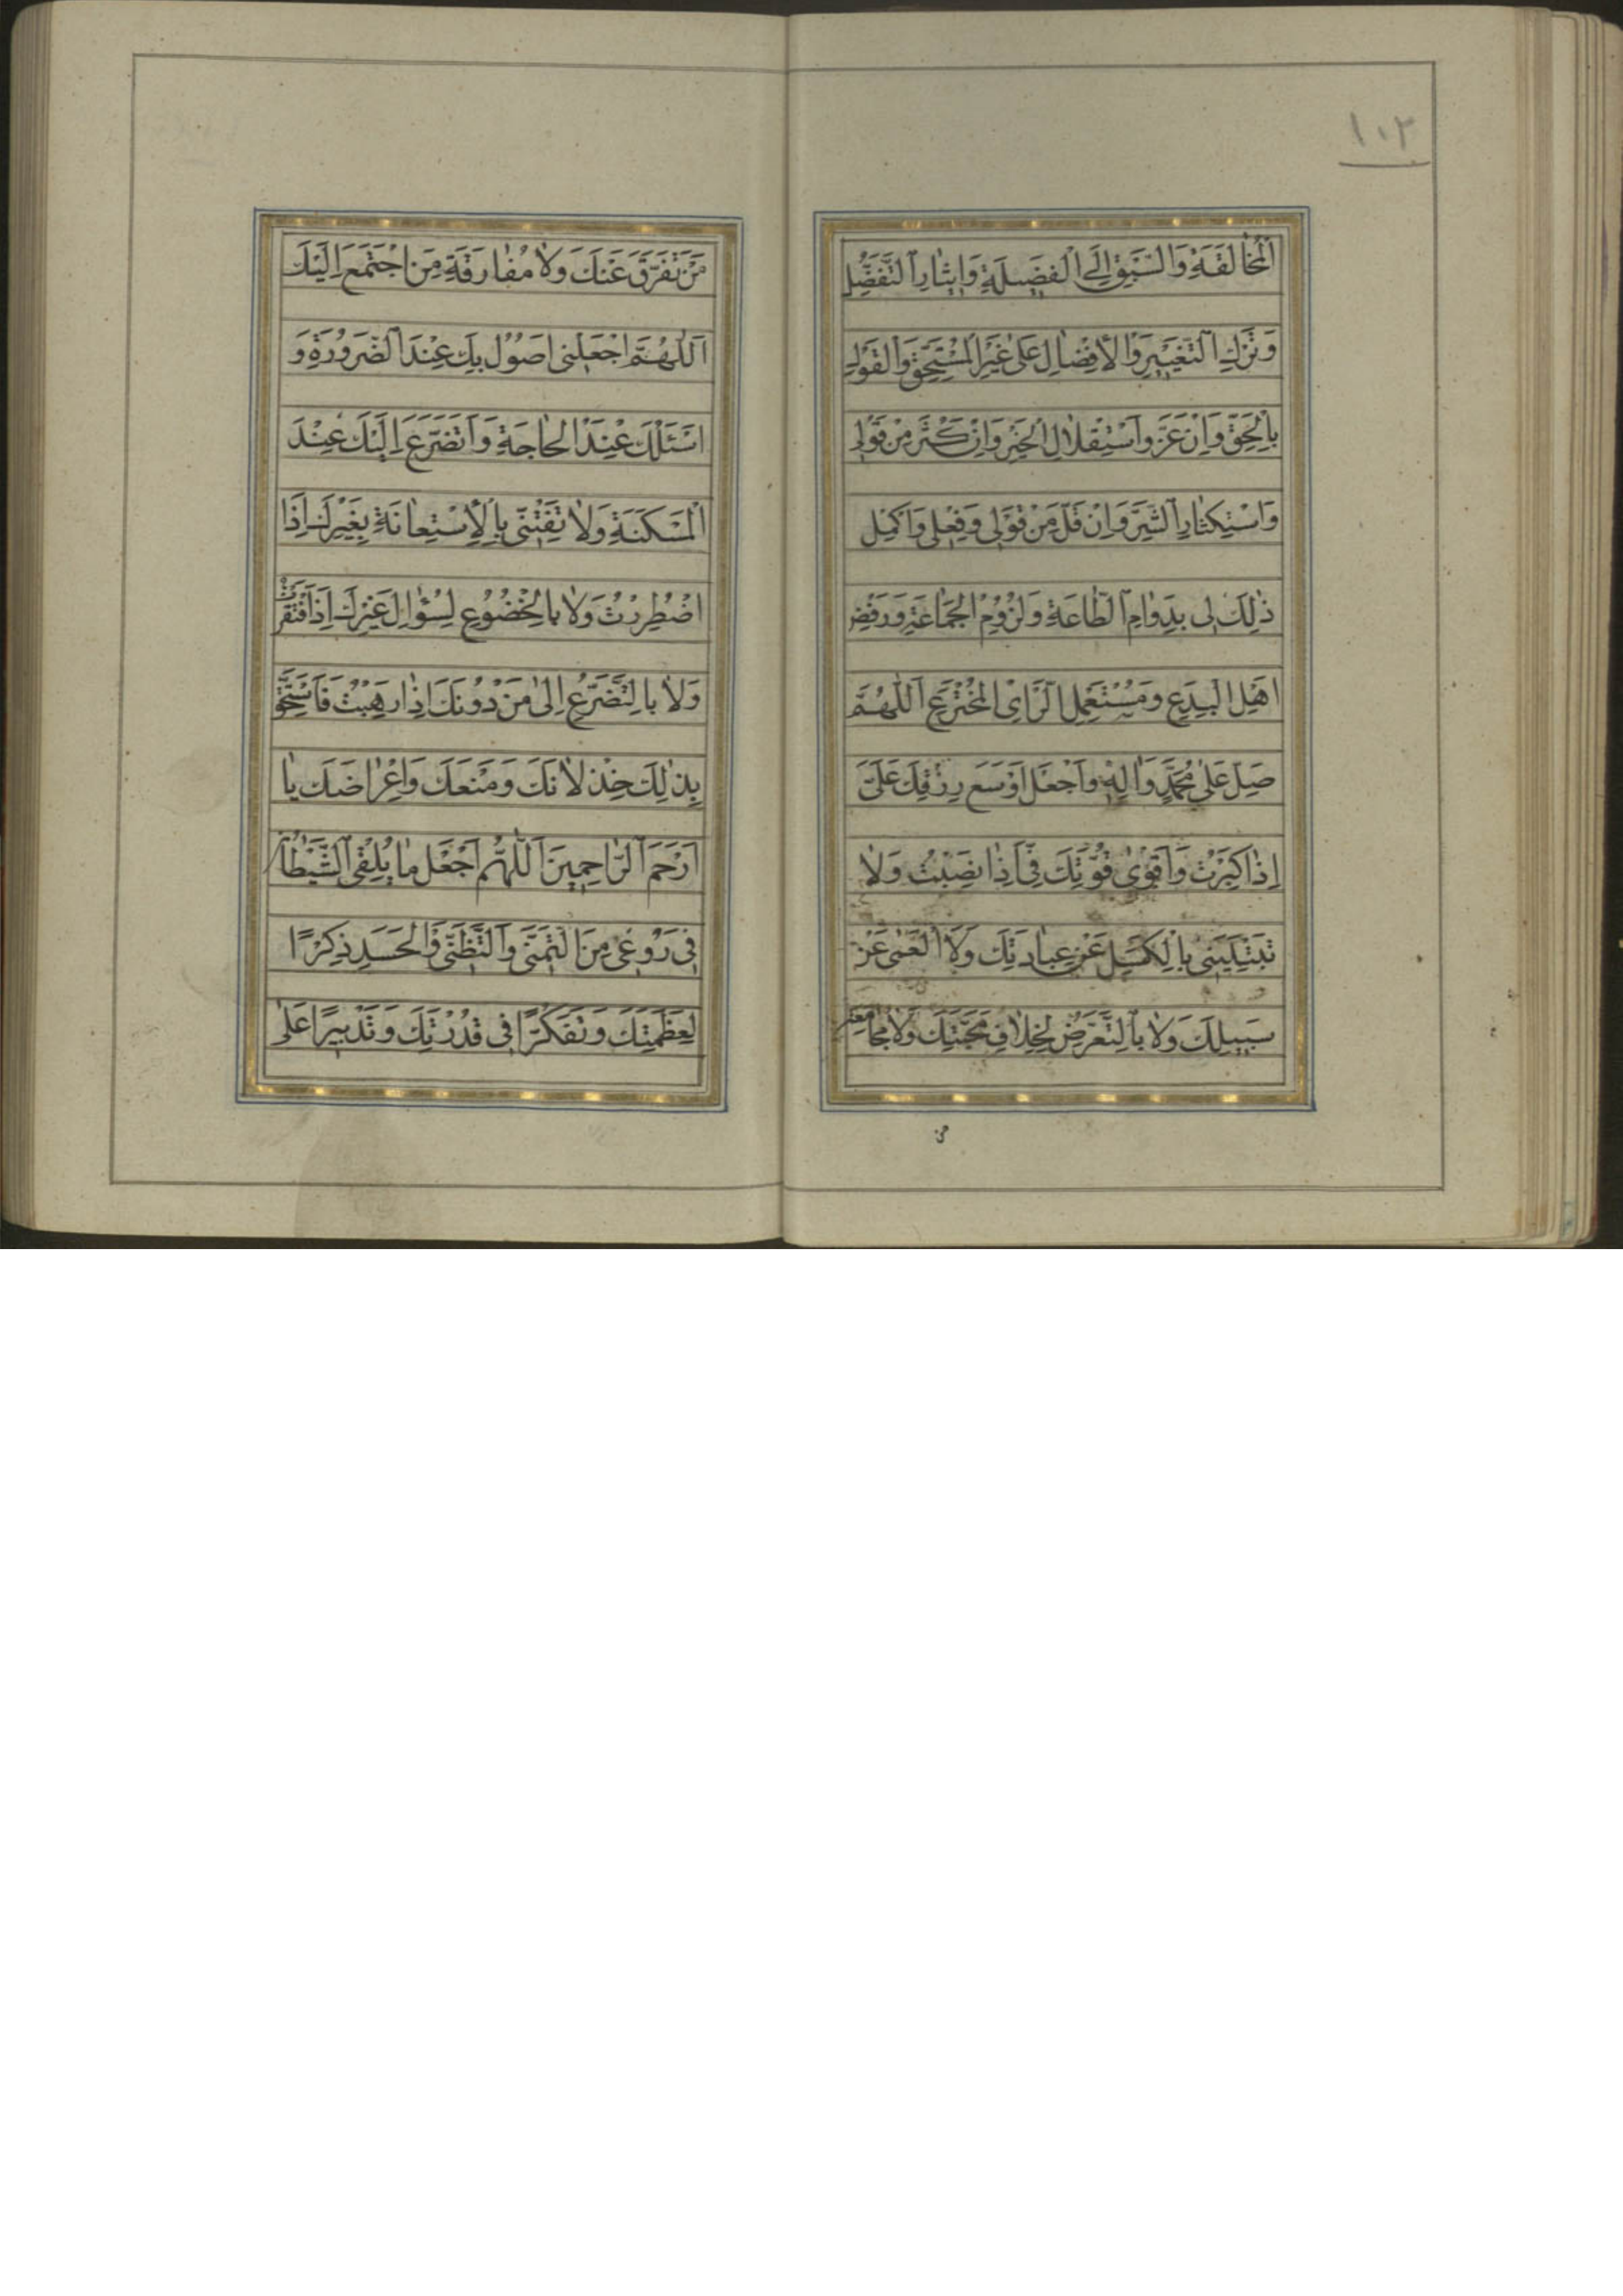 ١٠٢
الْمُخالَقَةِ وَالسَّبْقِ اِلَى الْفَضيلَةِ وَايثارِ التَّفَضُّلِ
وَتَرْكِ التَّعْييرِ وَالْاِفْضالِ عَلى غَيْرِ الْمُسْتَحِقِّ وَالْقَوْلِ
بِالْحَقِّ وَاِنْ عَزَّ وَاسْتِقْلالِ الْخَيْرِ وَاِنْ كَثُرَ مِنْ قَوْلى
وَاسْتِكْثارِ الشَّرِّ وَاِنْ قَلَّ مِنْ قَوْلى وَفِعْلى وَاَكْمِلْ
ذٰلِكَ لى بِدَوامِ الطّاعَةِ وَلُزُومِ الْجَماعَةِ وَرَفْضِ
اَهْلِ الْبِدَعِ وَمُسْتَعْمِلِ الرَّاىِ الْمُخْتَرَعِ اَللّٰهُمَّ
صَلِّ عَلى مُحَمَّدٍ وَالِهِ وَاجْعَلْ اَوْسَعَ رِزْقِكَ عَلَىَّ
اِذا كَبِرْتُ وَاَقْوى قُوَّتِكَ فِىَّ اِذا نَصِبْتُ وَلا
تَبْتَلِيَنّى بِالْكَسَلِ عَنْ عِبادَتِكَ وَلَا الْعَمى عَنْ
سَبيلِكَ وَلا بِالتَّعَرُّضِ لِخِلافِ مَحَبَّتِكَ وَلا مُجامَعَةِ
من
مَنْ تَفَرَّقَ عَنْكَ وَلا مُفارَقَةِ مَنِ اجْتَمَعَ اِلَيْكَ
اَللّٰهُمَّ اجْعَلْنى اَصُولُ بِكَ عِنْدَ الضَّرُورَةِ وَ
اَسْئَلُكَ عِنْدَ الْحاجَةِ وَاَتَضَرَّعُ اِلَيْكَ عِنْدَ
الْمَسْكَنَةِ وَلا تَفْتِنّى بِالْاِسْتِعانَةِ بِغَيْرِكَ اِذَا
اضْطُرِرْتُ وَلا بِالْخُضُوعِ لِسُؤالِ غَيْرِكَ اِذَا افْتَقَرْتُ
وَلا بِالتَّضَرُّعِ اِلى مَنْ دُونَكَ اِذا رَهِبْتُ فَاَسْتَحِقَّ
بِذٰلِكَ خِذْلانَكَ وَمَنْعَكَ وَاِعْراضَكَ يا
اَرْحَمَ الرّاحِمينَ اَللّٰهُمَّ اجْعَلْ ما يُلْقِى الشَّيْطانُ
فى رَوْعى مِنَ التَّمَنّى وَالتَّظَنّى وَالْحَسَدِ ذِكْرًا
لِعَظَمَتِكَ وَتَفَكُّرًا فى قُدْرَتِكَ وَتَدْبيرًا عَلى